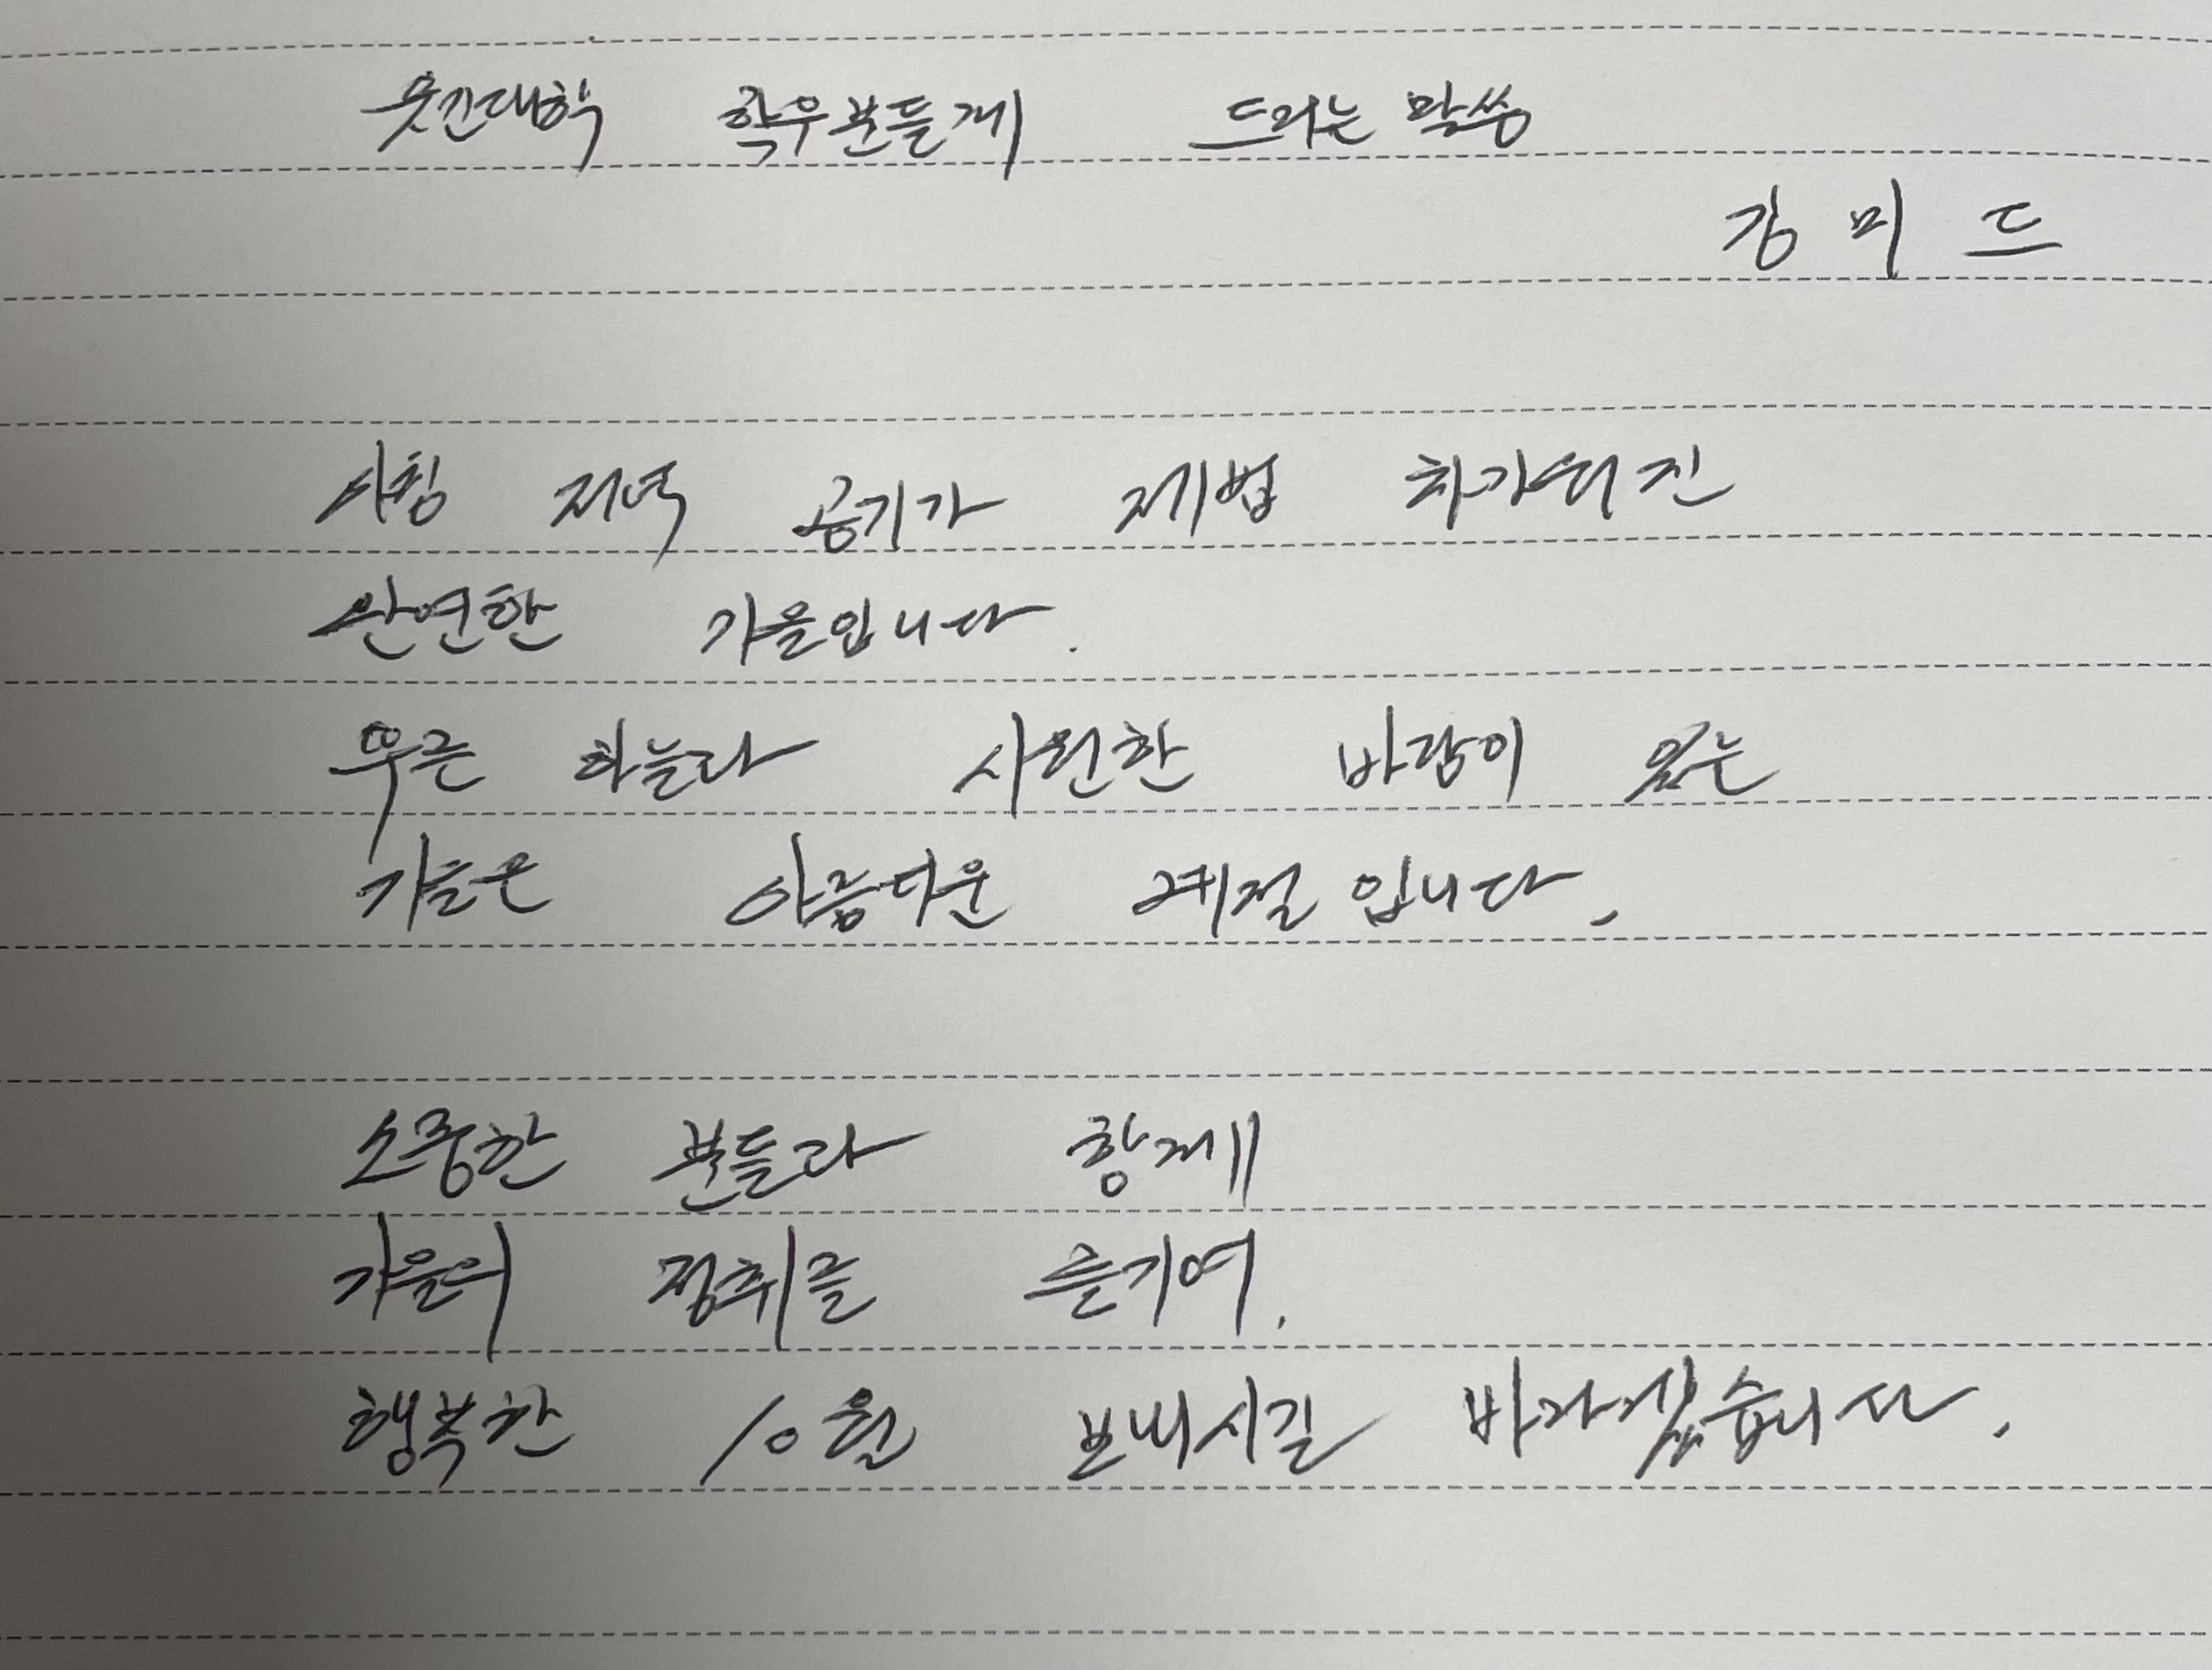 웃긴대학 학우분들께 드리는 말씀
김미드
아침 저녁 공기가 제법 차가워진
완연한 가을입니다.
푸른 하늘과 시원한 바람이 있는
가을은 아름다운 계절입니다.
소중한 분들과 함께
가을의 정취를 즐기며,
행복한 10월 보내시길 바라겠습니다.